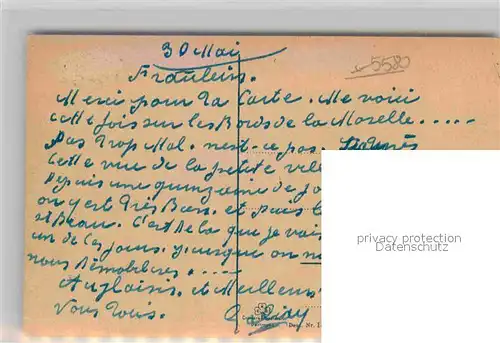 30 Mai
5580
Fräulein.
Merci pour ta Carte. Me voici
cette fois sur les Bords de la Moselle.....
Pas trop Mal. n'est-ce pas.
Cette vue de la petite
Depuis une quinzaine de
on y est très Bien. et puis
st Beau. C'est de la que je
un de ces jours. Puisque on
nous Démobilisera. ....
et Meilleurs
Vous Tous.
privacy protection
Datenschutz